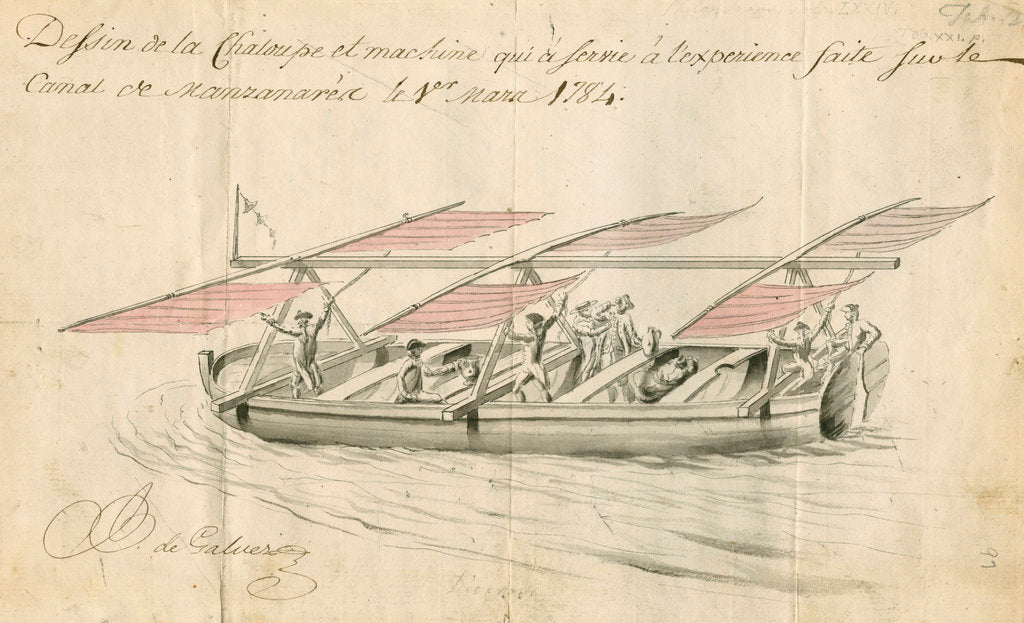 Dessin de la Chaloupe et machine qui à servie à l'experience faite sur le
Canal de Manzanaréz le 1.er Mars 1784.
LXXIV.
Tab. XXI. p.
B. de Galvez